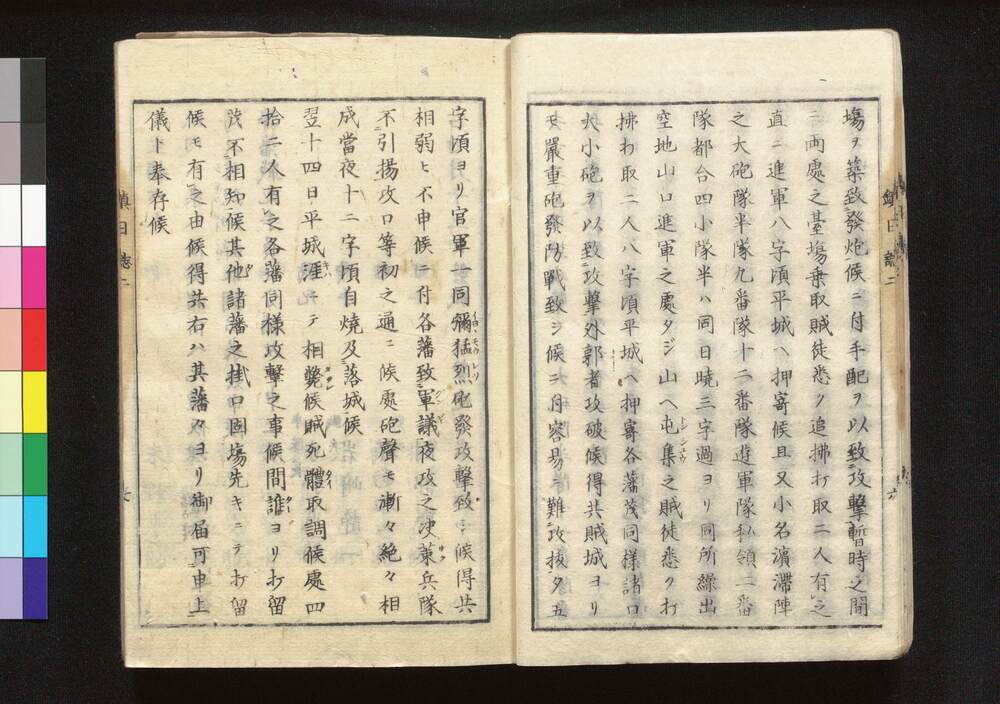 塲ヲ築致發炮候ニ付手配ヲ以致攻擊暫時之間
ニ両處之臺塲乗取賊徒悉ク追拂打取二人有之
直ニ進軍八字頃平城ヘ押寄候且又小名濵滯陣
之大砲隊半隊九番隊十二番隊遊軍隊私領二番
隊都合四小隊半ハ同日曉三字過ヨリ同所繰出
空地山口進軍之處タジ山ヘ屯集之賊徒悉ク打
拂わ取二人八字頃平城ヘ押寄各藩茂同樣諸口
大小砲ヲ以致攻擊外郭者攻破候得共賊城ヨリ
モ嚴重砲發防戰致シ候ニ付容易ニ難攻拔夕五
字頃ヨリ官軍一同彌猛烈砲發攻擊致シ候得共
相弱ヒ不申候ニ付各藩致軍議夜攻之决兼兵隊
不引揚攻口等初之通ニ候處砲聲モ漸々絶々相
成當夜十二字頃自燒及落城候
翌十四日平城涯ニテ相斃候賊死體取調候處四
拾二人有之各藩同樣攻擊之事候間誰ヨリ打留
茂不相知候其他諸藩之掛口固塲先キニテ打留
候モ有之由候得共右ハ其藩々ヨリ御届可申上
儀ト奉存候
鎮日誌二
六
鎮日誌二
七